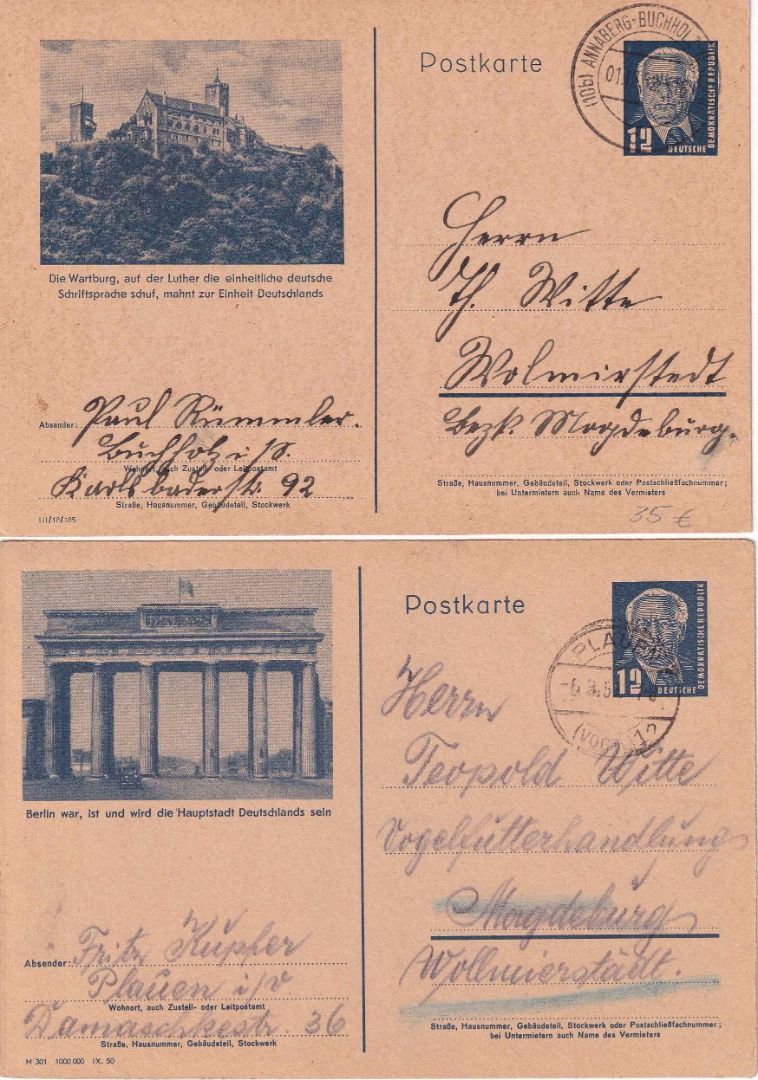 Postkarte
(10b) ANNABERG-BUCHHOL
12
DEUTSCHE
DEMOKRATISCHE REPUBLIK
Die Wartburg, auf der Luther die einheitliche deutsche
Schriftsprache schuf, mahnt zur Einheit Deutschlands
Herrn
Th. Witte
Wolmirstedt
Bezk. Magdeburg.
Absender: Paul Rümmler.
Buchholz i/S.
Wohnort, auch Zustell- oder Leitpostamt
Karlsbaderstr. 92
Straße, Hausnummer, Gebäudeteil, Stockwerk
III/18/185
Straße, Hausnummer, Gebäudeteil, Stockwerk oder Postschließfachnummer;
bei Untermietern auch Name des Vermieters
35 €
Postkarte
PLAUEN
(VOGTL) 2
12
DEUTSCHE
DEMOKRATISCHE REPUBLIK
Berlin war, ist und wird die Hauptstadt Deutschlands sein
Herrn
Teopold Witte
Vogelfutterhandlung
Magdeburg
Wollmierstädt.
Absender: Fritz Kupfer
Plauen i/V
Wohnort, auch Zustell- oder Leitpostamt
Damaschkestr. 36
Straße, Hausnummer, Gebäudeteil, Stockwerk
M 301 1000000 IX. 50
Straße, Hausnummer, Gebäudeteil, Stockwerk oder Postschließfachnummer;
bei Untermietern auch Name des Vermieters